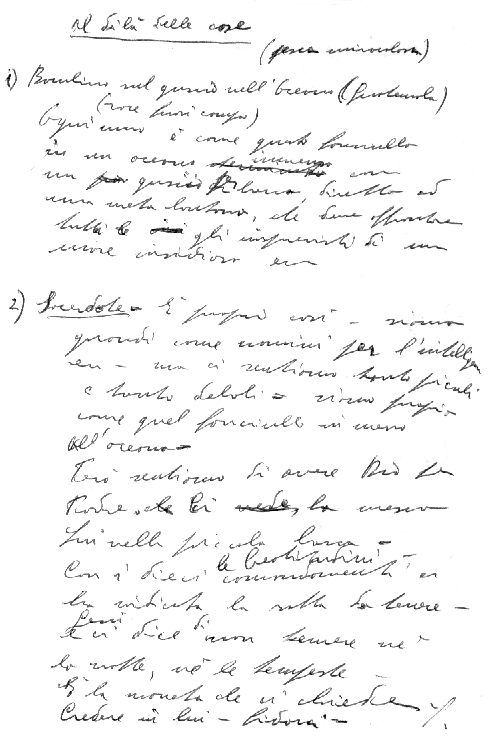 Al di là delle cose
(pesca miracolosa)
1) Bambino sul guscio nell'oceano (Guatemala)
(voce fuori campo)
Ognuno è come questo fanciullo
in un oceano immenso con
un guscio per barca, diretto ad
una meta lontana, che deve affrontare
tutti gli imprevisti di un
mare insidioso ecc
2) Sacerdote = È proprio così - siamo
grandi come uomini per l'intelligen
za - ma ci sentiamo tanto piccoli
e tanto deboli = siamo proprio
come quel fanciullo in mezzo
all'oceano =
Però sentiamo di avere Dio per
Padre, che ci ha messo
Lui nella piccola barca =
le beatitudini -
Con i dieci comandamenti ci
ha indicato la rotta da tenere -
e ci dice di non temere nè
la notte, nè le tempeste -
È la moneta che ci chiede
Credere in Lui -